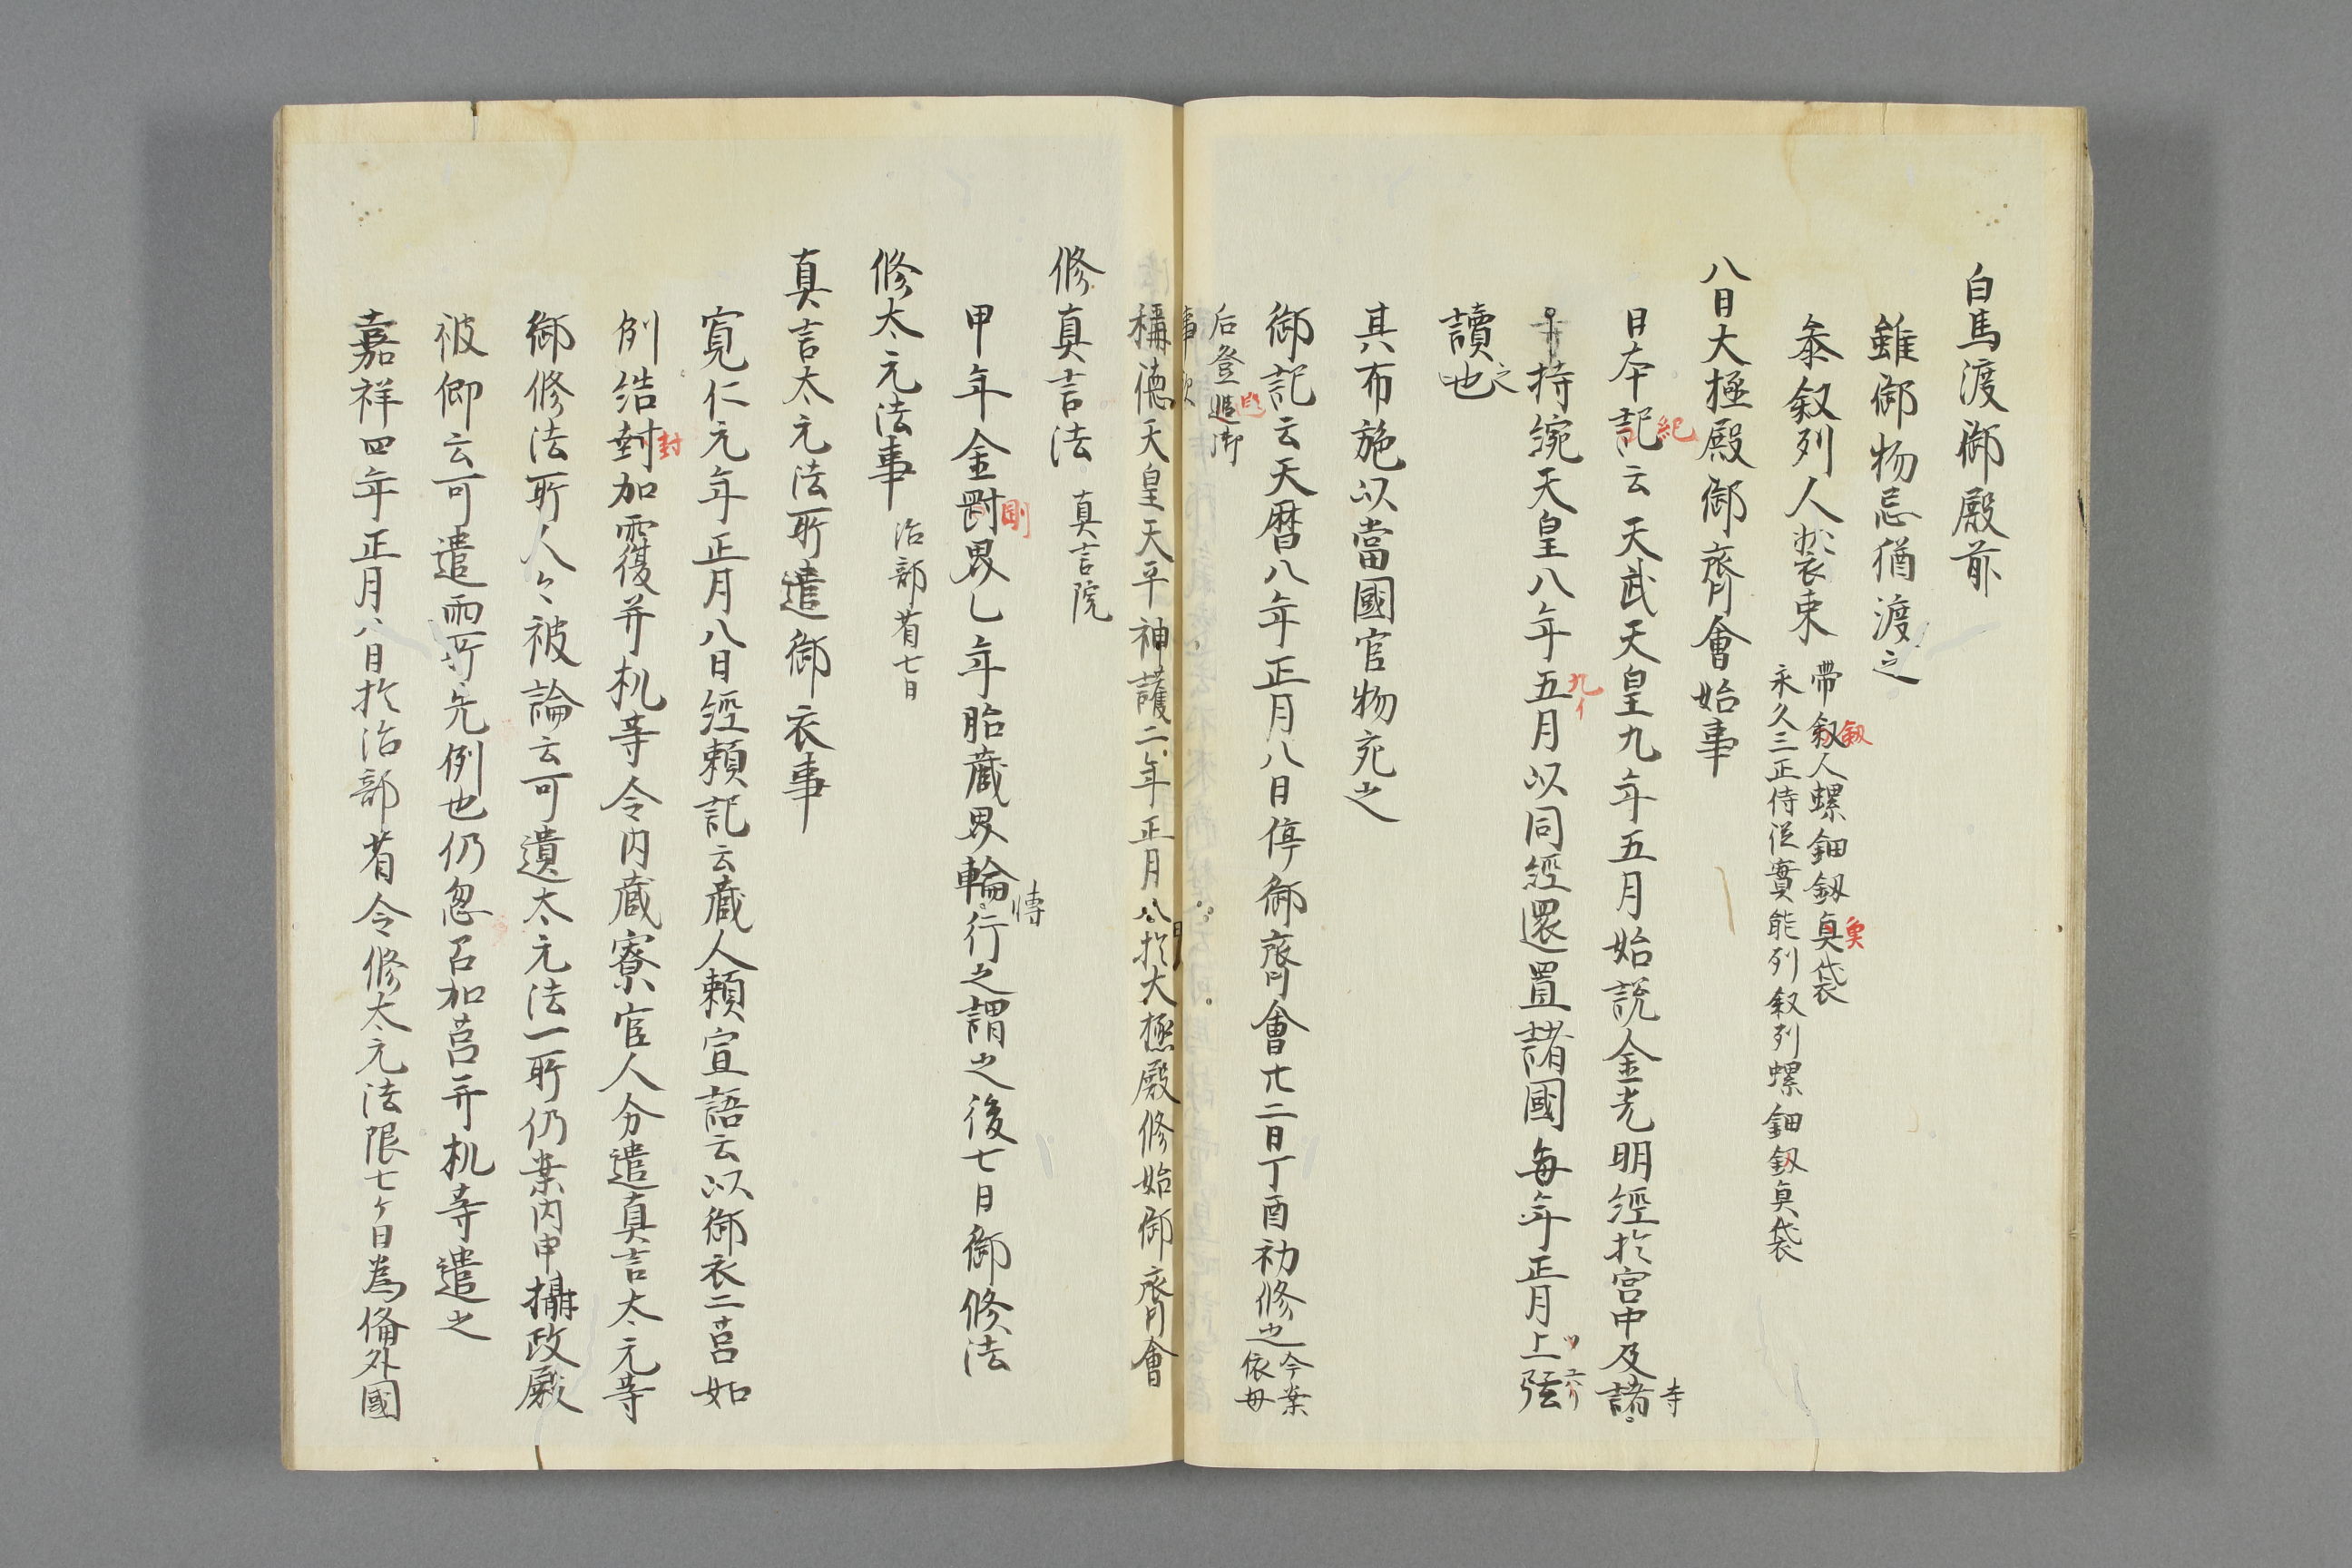 白馬渡御殿前
雖御物忌猶渡之
叅叙列人装束
帶釼人螺鈿釼魚袋
永久三正侍従實能列叙列螺鈿釼魚袋
八日大極殿御齊會始事
日本記云天武天皇九年五月始説金光明經於宮中及諸寺
紀
持綂天皇八年五月以同經還置諸國每年正月上弦
九イ
讀之也
其布施以當國官物充之
御記云天暦八年正月八日停御齊會廿二日丁酉初修之
今案
依母
后登遐御
事歟
稱德天皇天平神護二年正月八日於大極殿修始御齊會
修真言法
真言院
甲年金剛界乙年胎蔵界輪轉行之謂之後七日御修法
剛
修太元法事
治部省七日
真言太元法所遣御衣事
寛仁元年正月八日經頼記云蔵人頼宣語云以御衣二莒如
例結封加覆并机等令内蔵寮官人分遣真言太元等
封
御修法所人々被論云可遣太元法一所仍案内申攝政殿
被仰云可遣兩所先例也仍忽召加莒并机等遣之
嘉祥四年正月八日於治部省令修太元法限七ケ日為俻外國